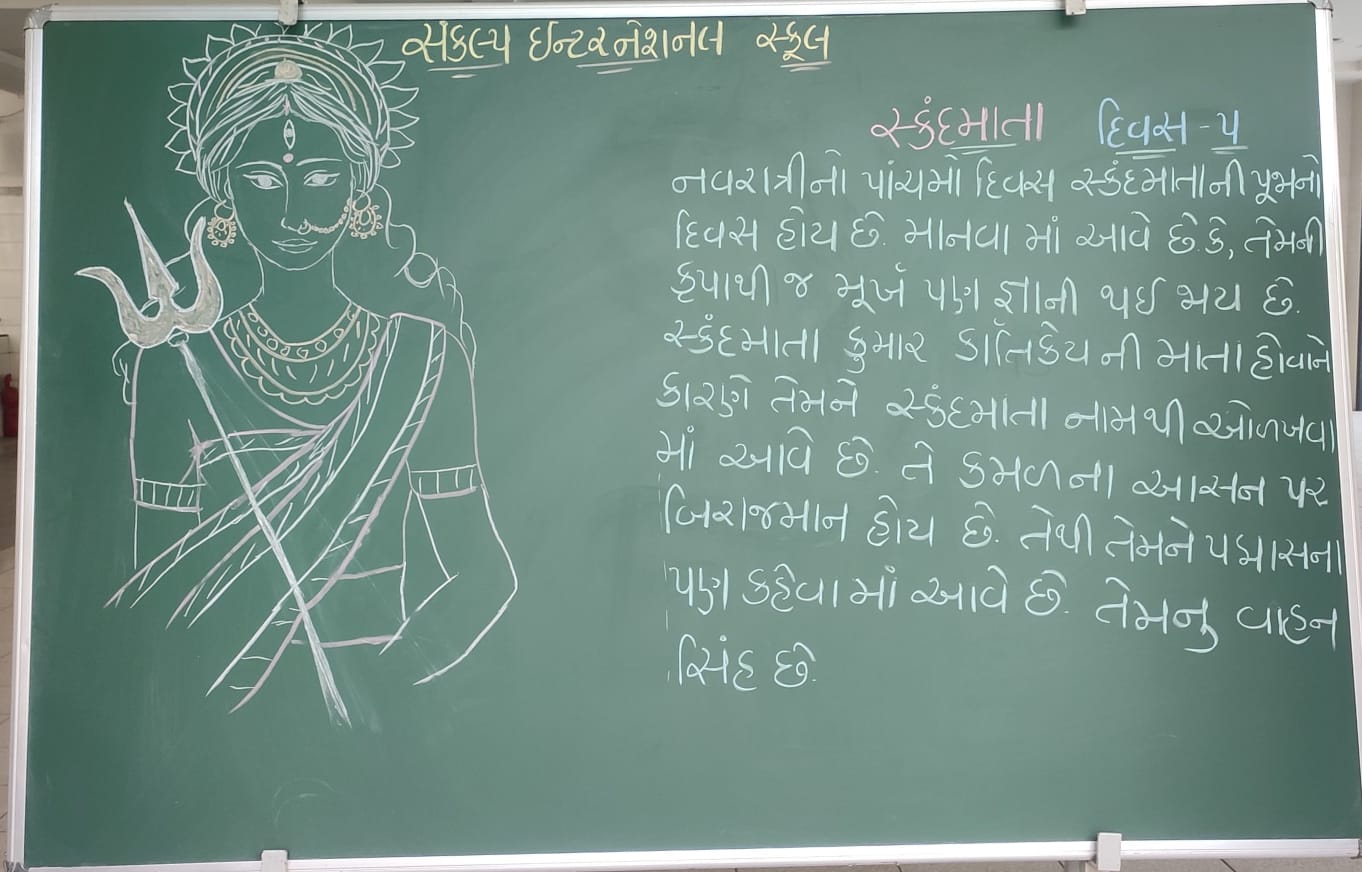 સંકલ્પ ઈન્ટરનેશનલ સ્કૂલ
સ્કંદમાતા દિવસ - ૫
નવરાત્રીનો પાંચમો દિવસ સ્કંદમાતાની પૂજાનો
દિવસ હોય છે. માનવા માં આવે છે.કે, તેમની
કૃપાથી જ મૂર્ખ પણ જ્ઞાની થઈ જાય છે.
સ્કંદમાતા કુમાર કાર્તિકેય ની માતા હોવાને
કારણે તેમને સ્કંદમાતા નામથી ઓળખવા
માં આવે છે. તે કમળના આસન પર
બિરાજમાન હોય છે. તેથી તેમને પદ્માસના
પણ કહેવામાં આવે છે. તેમનુ વાહન
સિંહ છે.